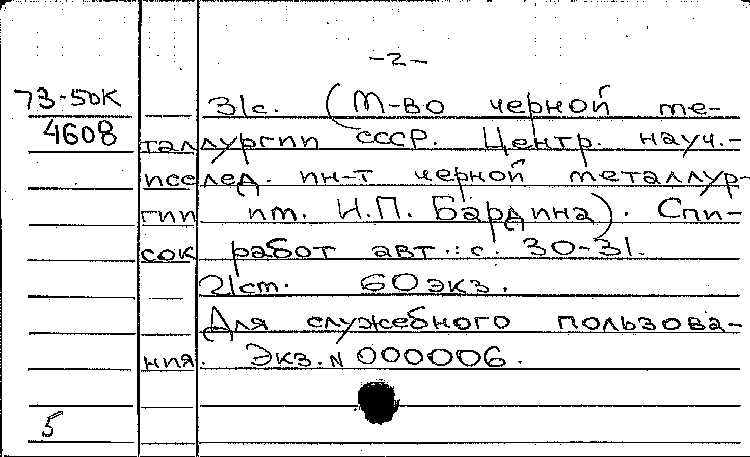 -2-
73-50К 31с. (М-во черной ме-
4608 таллургии СССР. Центр. науч.-
исслед. ин-т черной металлур-
гии им. И.П. Бардина). Спи-
сок работ авт.: с. 30-31.
21 ст. 60 экз.
Для служебного пользова-
ния. Экз. N 000006.
5